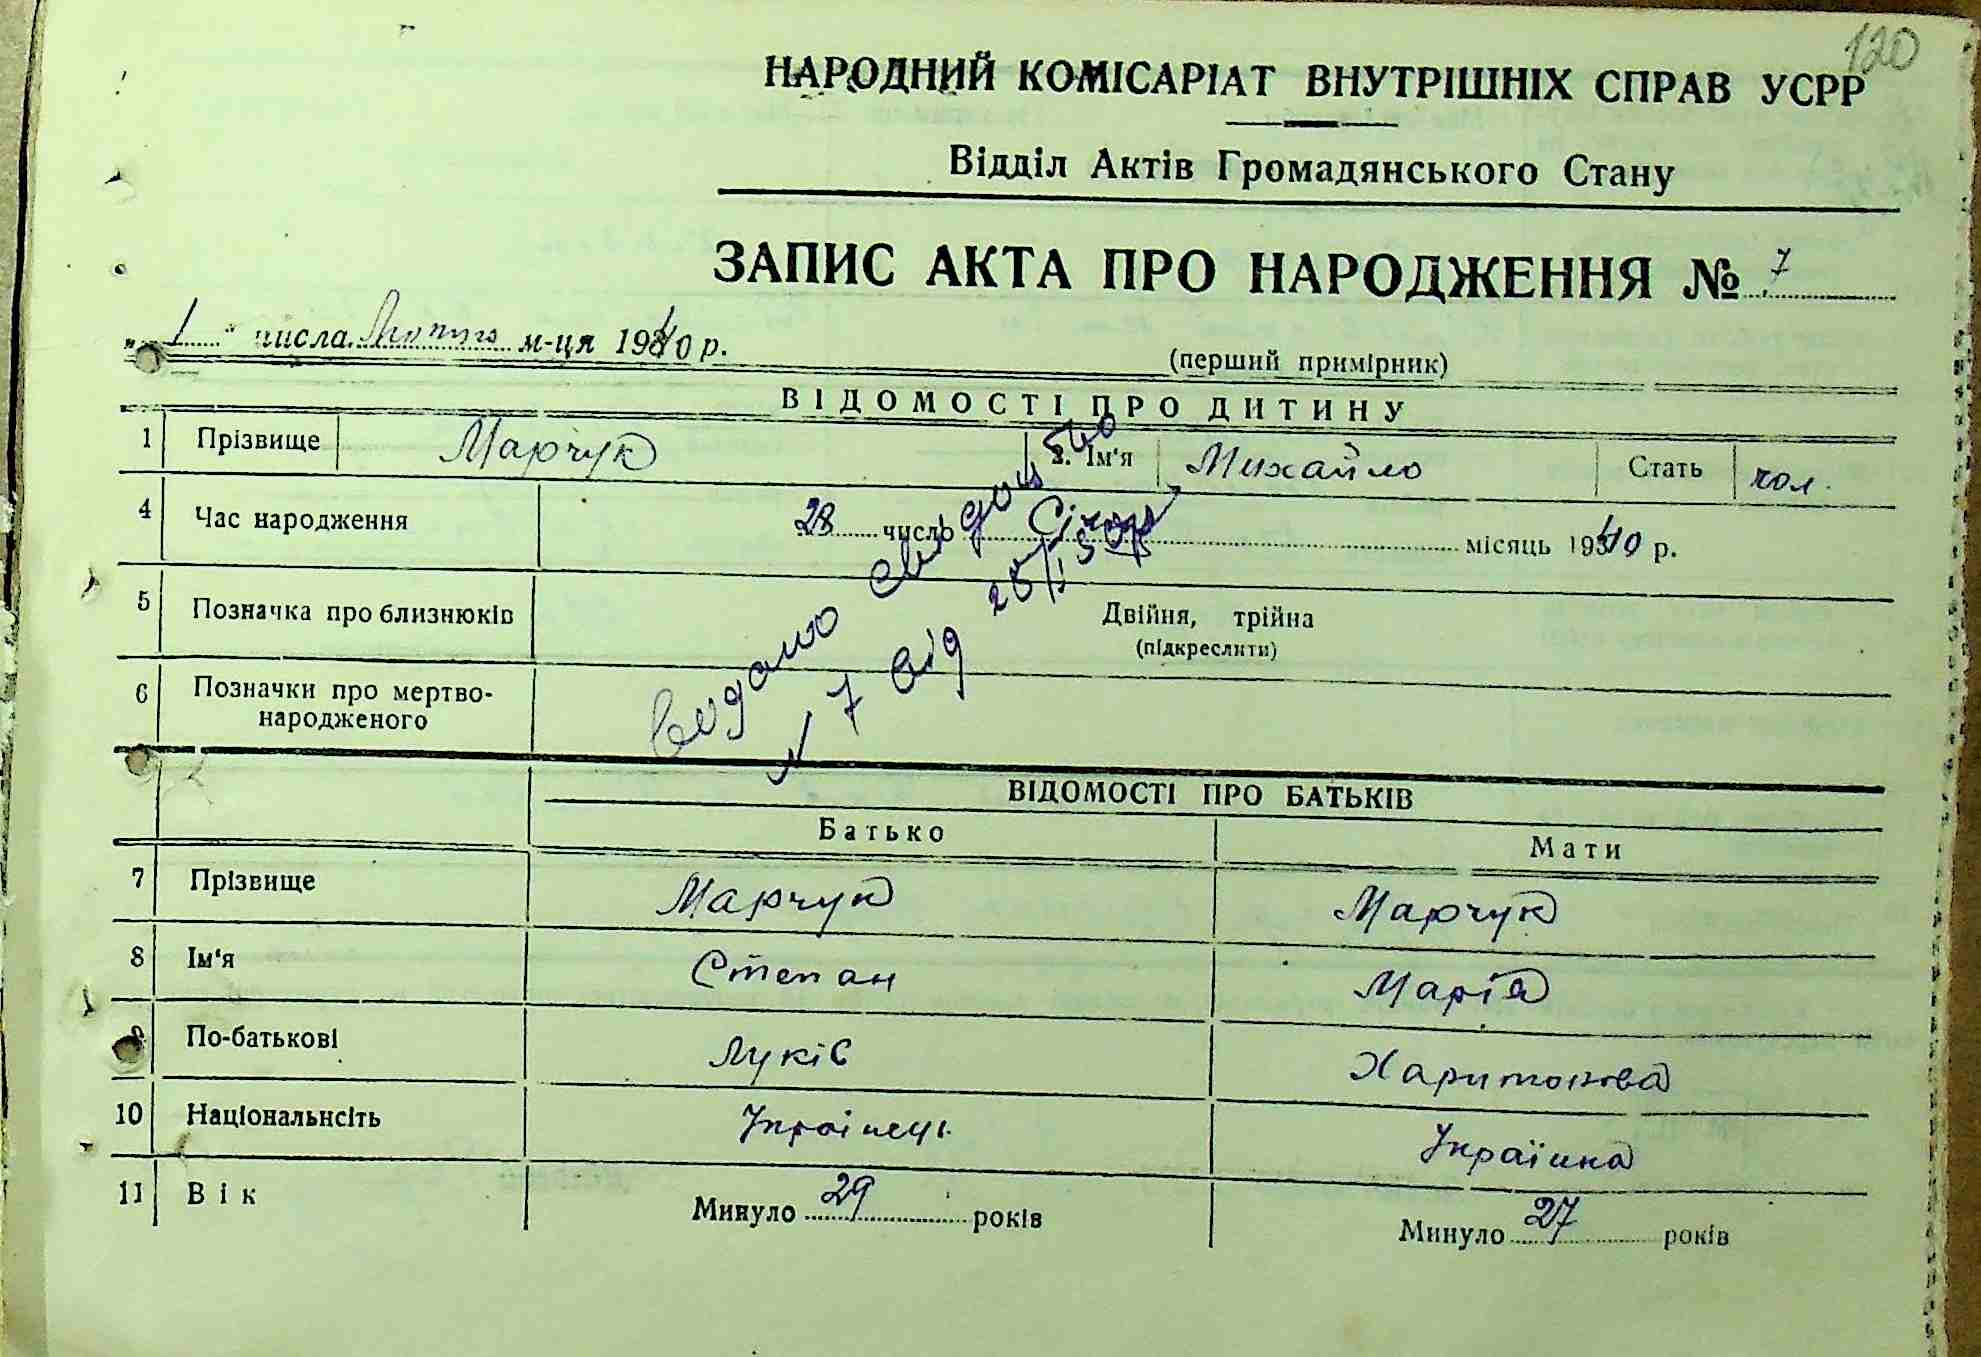 120
НАРОДНИЙ КОМІСАРІАТ ВНУТРІШНІХ СПРАВ УСРР
Відділ Актів Громадянського Стану
ЗАПИС АКТА ПРО НАРОДЖЕННЯ № 7
„ 1 " числа Лютого м-ця 1940 р.
(перший примірник)
ВІДОМОСТІ ПРО ДИТИНУ
1 Прізвище Марчук 2. Ім'я Михайло Стать чол.
4 Час народження 28 число Січня місяць 1940 р.
5 Позначка про близнюків Двійня, трійна
(підкреслити)
6 Позначки про мертво-
народженого
видано
№ 7 від
ВІДОМОСТІ ПРО БАТЬКІВ
Батько Мати
7 Прізвище Марчук Марчук
8 Ім'я Степан Марія
9 По-батькові Луків Харитонова
10 Національнсіть Українець Українка
11 Вік Минуло 29 років Минуло 27 років